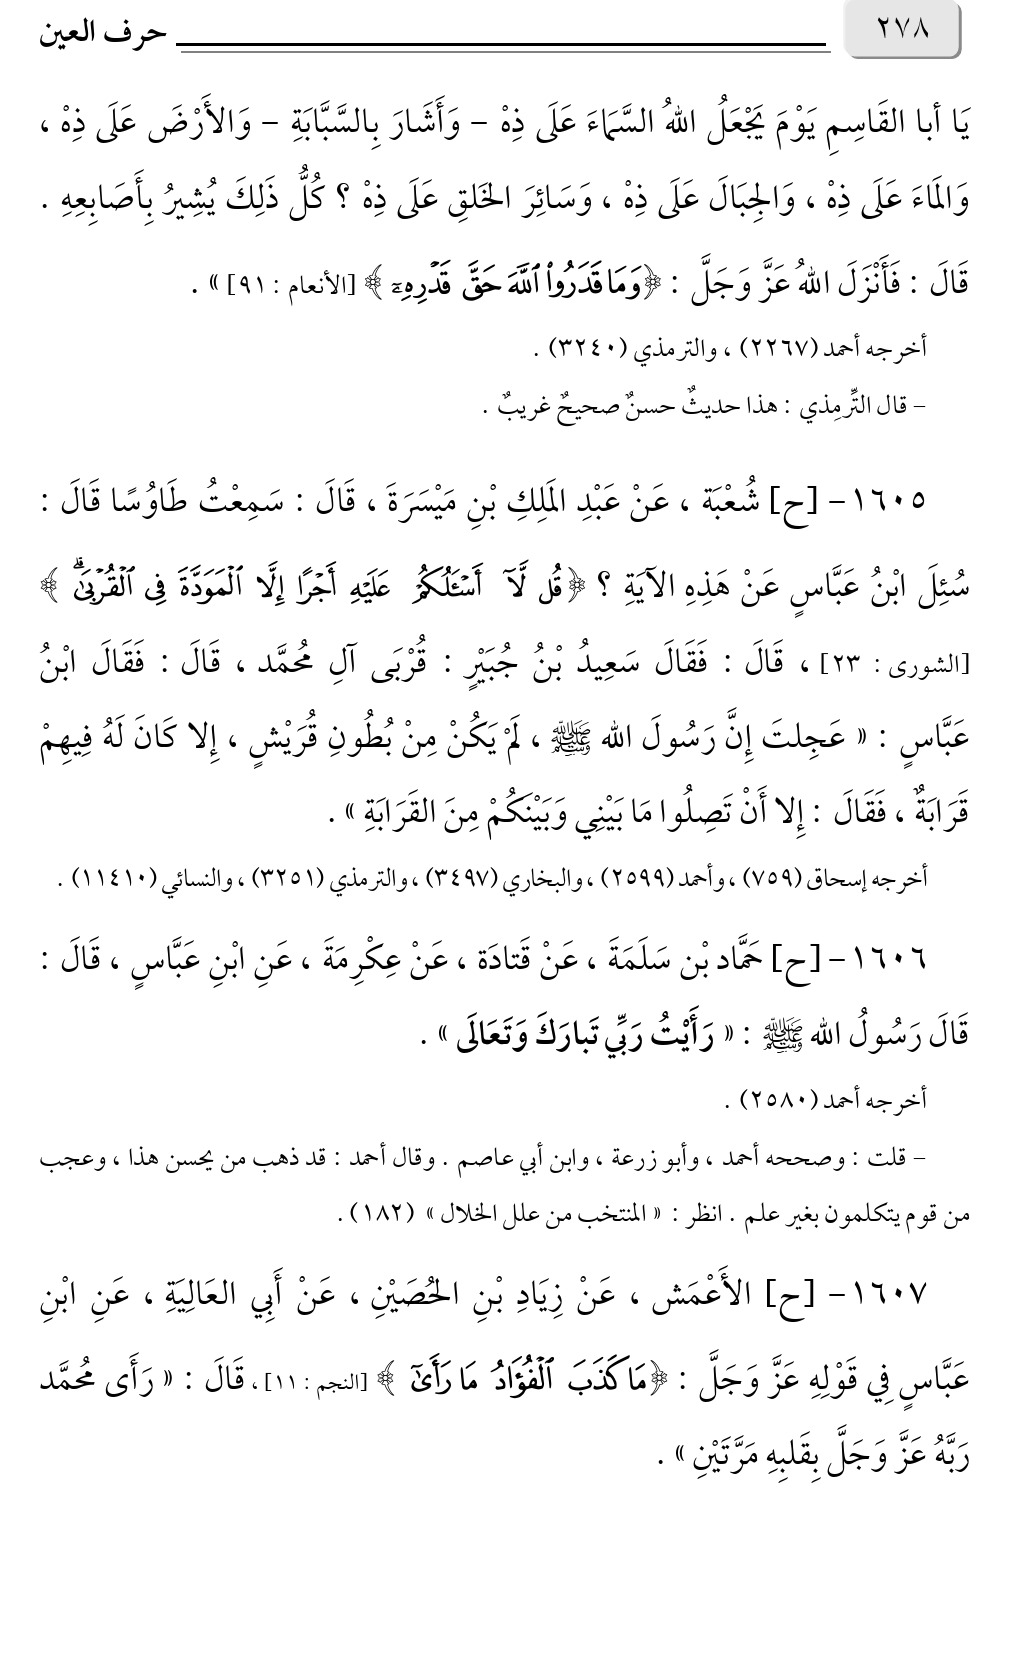 ٢٧٨
حرف العين
يَا أبا القَاسِمِ يَوْمَ يَجْعَلُ اللهُ السَّمَاءَ عَلَى ذِهْ – وَأَشَارَ بِالسَّبَّابَةِ – وَالأَرْضَ عَلَى ذِهْ ،
وَالمَاءَ عَلَى ذِهْ ، وَالجِبَالَ عَلَى ذِهْ ، وَسَائِرَ الخَلقِ عَلَى ذِهْ ؟ كُلُّ ذَلِكَ يُشِيرُ بِأَصَابِعِهِ .
قَالَ : فَأَنْزَلَ اللهُ عَزَّ وَجَلَّ : ﴿وَمَا قَدَرُوا۟ ٱللَّهَ حَقَّ قَدۡرِهِۦٓ ﴾ [الأنعام : ٩١] » .
أخرجه أحمد (٢٢٦٧) ، والترمذي (٣٢٤٠) .
– قال التِّرمِذي : هذا حديثٌ حسنٌ صحيحٌ غريبٌ .
١٦٠٥ – [ح] شُعْبَة ، عَنْ عَبْدِ المَلِكِ بْنِ مَيْسَرَةَ ، قَالَ : سَمِعْتُ طَاوُسًا قَالَ :
سُئِلَ ابْنُ عَبَّاسٍ عَنْ هَذِهِ الآيَةِ ؟ ﴿قُل لَّآ أَسۡـَٔلُكُمۡ عَلَيۡهِ أَجۡرًا إِلَّا ٱلۡمَوَدَّةَ فِى ٱلۡقُرۡبَىٰۗ ﴾
[الشورى : ٢٣] ، قَالَ : فَقَالَ سَعِيدُ بْنُ جُبَيْرٍ : قُرْبَى آلِ مُحمَّد ، قَالَ : فَقَالَ ابْنُ
عَبَّاسٍ : « عَجِلتَ إِنَّ رَسُولَ الله ﷺ ، لَمْ يَكُنْ مِنْ بُطُونِ قُرَيْشٍ ، إِلا كَانَ لَهُ فِيهِمْ
قَرَابَةٌ ، فَقَالَ : إِلا أَنْ تَصِلُوا مَا بَيْنِي وَبَيْنَكُمْ مِنَ القَرَابَةِ » .
أخرجه إسحاق (٧٥٩) ، وأحمد (٢٥٩٩) ، والبخاري (٣٤٩٧) ، والترمذي (٣٢٥١) ، والنسائي (١١٤١٠) .
١٦٠٦ – [ح] حَمَّاد بْن سَلَمَةَ ، عَنْ قَتادَة ، عَنْ عِكْرِمَةَ ، عَنِ ابْنِ عَبَّاسٍ ، قَالَ :
قَالَ رَسُولُ الله ﷺ : « رَأَيْتُ رَبِّي تَبارَكَ وَتَعَالَى » .
أخرجه أحمد (٢٥٨٠) .
– قلت : وصححه أحمد ، وأبو زرعة ، وابن أبي عاصم . وقال أحمد : قد ذهب من يحسن هذا ، وعجب
من قوم يتكلمون بغير علم . انظر : « المنتخب من علل الخلال » (١٨٢) .
١٦٠٧ – [ح] الأَعْمَش ، عَنْ زِيَادِ بْنِ الحُصَيْنِ ، عَنْ أَبِي العَالِيَةِ ، عَنِ ابْنِ
عَبَّاسٍ فِي قَوْلِهِ عَزَّ وَجَلَّ : ﴿مَا كَذَبَ ٱلۡفُؤَادُ مَا رَأَىٰٓ ﴾ [النجم : ١١] ، قَالَ : « رَأَى مُحمَّد
رَبَّهُ عَزَّ وَجَلَّ بِقَلبِهِ مَرَّتَيْنِ » .